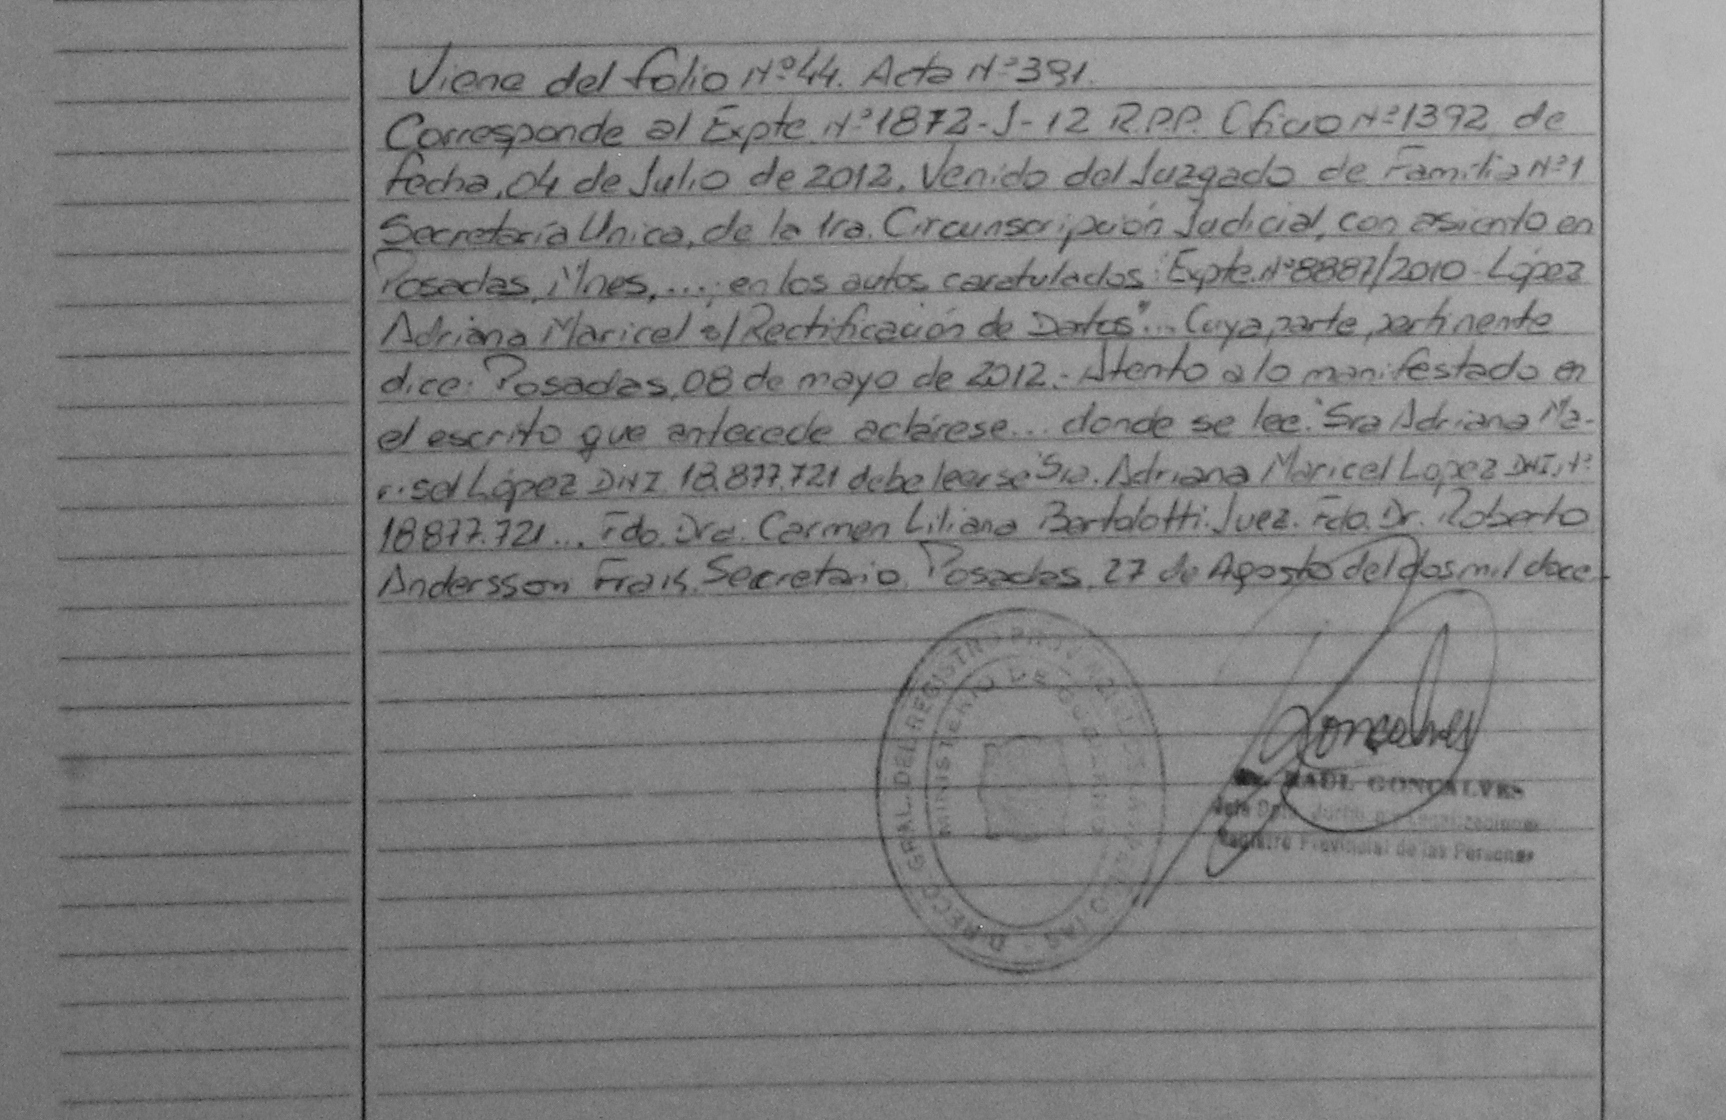 Viene del folio Nº44. Acta Nº391.
Corresponde al Expte. Nº1872-J-12 R.P.P. Oficio Nº1392 de
fecha, 04 de Julio de 2012, Venido del Juzgado de Familia Nº1
Secretaría Unica, de la 1ra. Circunscripción Judicial, con asiento en
Posadas, Mnes, ...; en los autos caratulados: "Expte. Nº8887/2010-López
Adriana Maricel s/Rectificación de Datos"... Cuya parte pertinente
dice: Posadas, 08 de mayo de 2012.- Atento a lo manifestado en
el escrito que antecede aclárese... donde se lee: "Sra Adriana Ma-
risol López DNI 18.877.721 debe leerse "Sra. Adriana Maricel Lopez DNI, Nº
18877.721... Fdo. Dra. Carmen Liliana Bartolotti. Juez. Fdo. Dr. Roberto
Andersson Frais. Secretario. Posadas, 27 de Agosto del dos mil doce.
DIRECC. GRAL. DEL REGISTRO PROVINCIAL DE LAS PERSONAS
MINISTERIO DE GOBIERNO
Goncalves
RAUL GONCALVES
Registro Provincial de las Personas